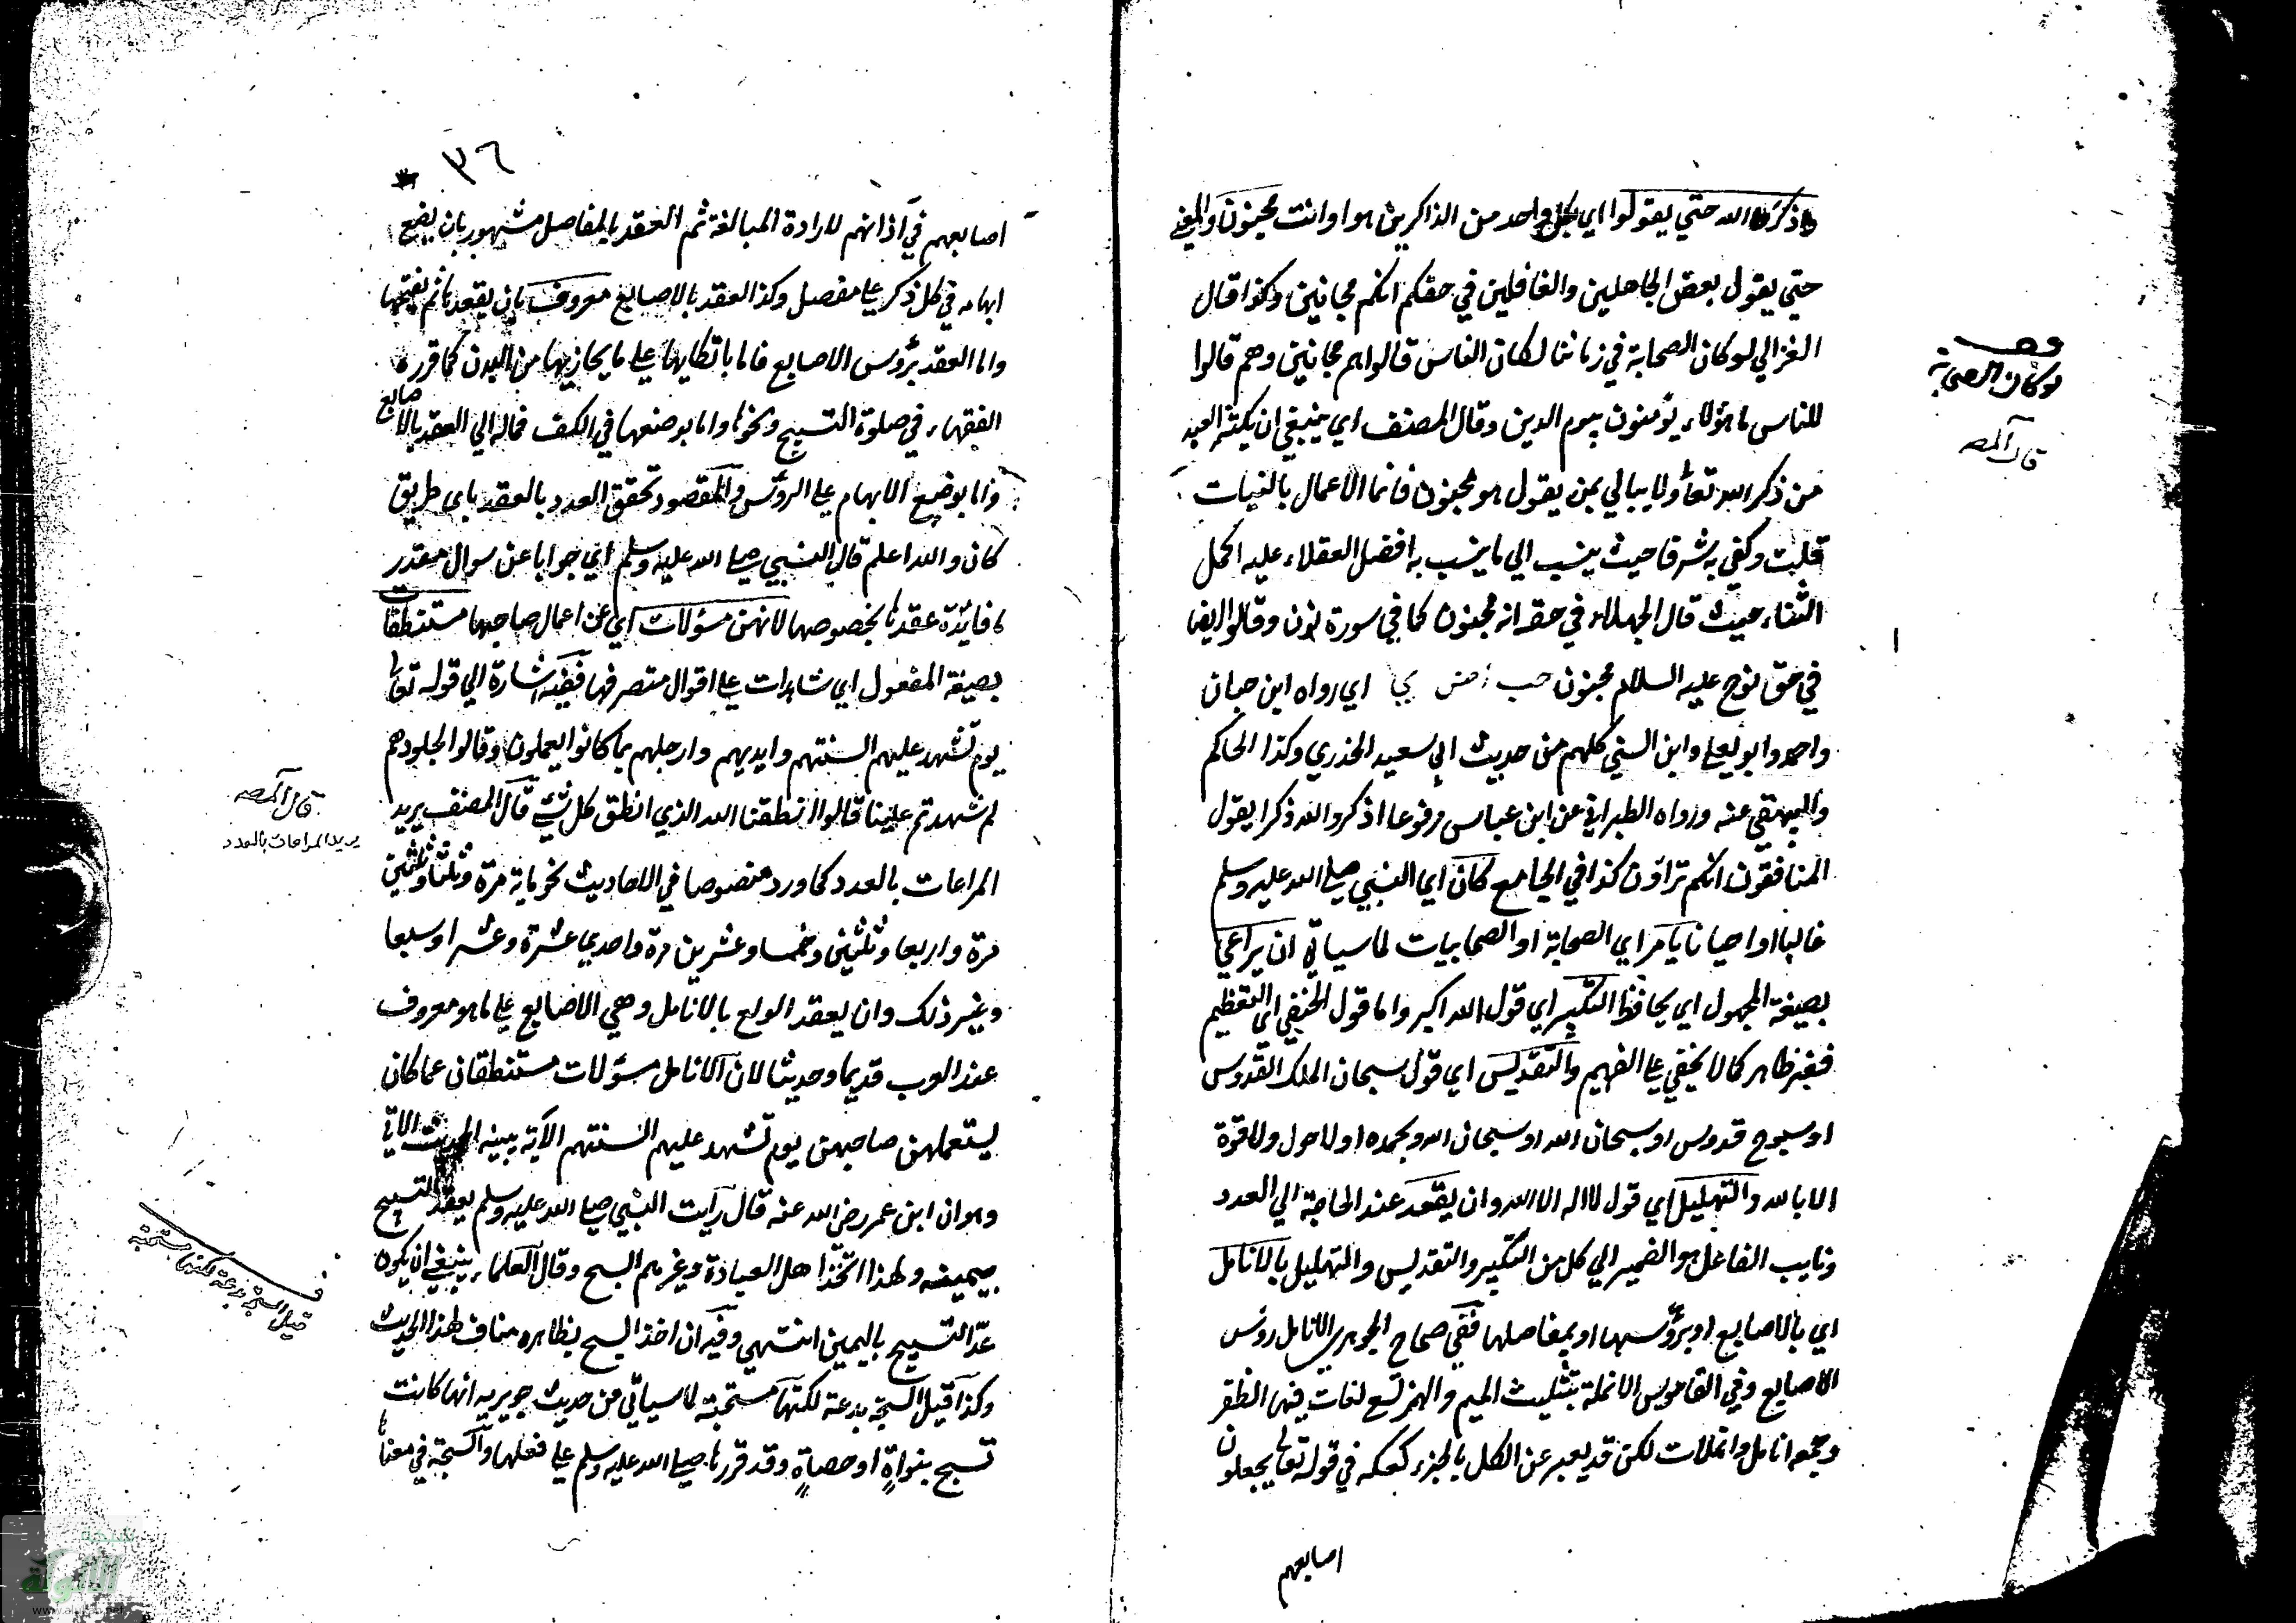 ذكر الله حتى يقولوا اي لكل واحد من الذاكرين هو او انت مجنون والمعنى
حتي يقول بعض الجاهلين والغافلين في حقكم انكم مجانين وكذا قال
الغزالي لو كان الصحابة في زماننا لكان الناس قالوا هم مجانين وهم قالوا
للناس ما هؤلاء يؤمنون بيوم الدين وقال المصنف اي ينبغي ان يكثر العبد
من ذكر الله تعا ولا يبالي بمن يقول هو مجنون فانما الاعمال بالنيات
قلت وكفي به شرفا حيث ينسب الي ما ينسب به افضل العقلاء عليه اكمل
الثناء حيث قال الجهلاء في حقه انه مجنون كما في سورة نون وقالوا ايضا
في حق نوح عليه السلام مجنون حب أ ص ي اي رواه ابن حبان
واحمد وابو يعلي وابن السني كلهم من حديث ابي سعيد الخدري وكذا الحاكم
والبيهقي عنه ورواه الطبراني عن ابن عباس مرفوعا اذكروا الله ذكرا يقول
المنافقون انكم تراؤن كذا في الجامع كان اي النبي صلي الله عليه وسلم
غالبا او احيانا يامر اي الصحابة او الصحابيات لما سياتي ان يراعي
بصيغة المجهول اي يحافظ التكبير اي قول الله اكبر واما قول الحنفي اي التعظيم
فغير ظاهر كما لا يخفي علي الفهيم والتقديس اي قول سبحان الملك القدوس
او سبوح قدوس او سبحان الله او سبحان الله وبحمده او لا حول ولا قوة
الا بالله والتهليل اي قول لا اله الا الله وان يعقد عند الحاجة الي العدد
ونايب الفاعل هو الضمير الي كل من التكبير والتقديس والتهليل بالانامل
اي بالاصابع او برؤسها او بمفاصلها ففي صحاح الجوهري الانامل رؤس
الاصابع وفي القاموس الانملة بتثليث الميم والهمز تسع لغات فيها الظفر
وجمعه انامل وانملات لكن قد يعبر عن الكل بالجزء كعكسه في قوله تعالي يجعلون
اصابعهم
لو كان الصحابة
قال المصـ
٣٦
اصابعهم في آذانهم لارادة المبالغة ثم العقد بالمفاصل مشهور بان يضع
ابهامه في كل ذكر علي مفصل وكذا العقد بالاصابع معروف بان يعقدها ثم يفتحها
واما العقد برؤس الاصابع فاما باتكايها علي ما يحاذيها من البدن كما قرره
الفقهاء في صلوة التسبيح ونحوها واما بوضعها في الكف فماله الي العقد بالاصابع
واما بوضع الابهام علي الرؤس والمقصود تحقق العدد بالعقد باي طريق
كان والله اعلم قال النبي صلي الله عليه وسلم اي جوابا عن سوال مقدر
ما فائدة عقدها بخصوصها لانهن مسؤلات اي عن اعمال صاحبها مستنطقات
بصيغة المفعول اي شاهدات علي اقوال متصرفها ففيه اشارة الي قوله تعالي
يوم تشهد عليهم السنتهم وايديهم وارجلهم بما كانوا يعملون وقالوا لجلودهم
لم شهدتم علينا قالوا انطقنا الله الذي انطق كل شئ قال المصنف يريد
المراعات بالعدد كما ورد منصوصا في الاحاديث نحو ماية مرة وثلثا وثلثين
مرة واربعا وثلثين وخمسا وعشرين مرة واحدي عشرة وعشرا وسبعا
وغير ذلك وان يعقد الولع بالانامل وهي الاصابع علي ما هو معروف
عند العرب قديما وحديثا لان الانامل مسؤلات مستنطقات عما كان
يستعملهن صاحبهن يوم تشهد عليهم السنتهم الآية يبينه الحديث الاتي
وهو ان ابن عمر رضي الله عنه قال رايت النبي صلي الله عليه وسلم يعقد التسبيح
بيمينه ولهذا اتخذا هل العبادة وغيرهم السبح وقال العلماء ينبغي ان يكون
عد التسبيح باليمين انتهي وفيه ان اخذ السبح بظاهره مناف لهذا الحديث
وكذا قيل السبحة بدعة لكنها مستحبة لما سياتي من حديث جويريه انها كانت
تسبح بنواة او حصاة وقد قررها صلي الله عليه وسلم علي فعلها والسبحة في معناها
قال المصـ
يريد المراعات بالعدد
قيل السبحة بدعة لكنها مستحبة
شبكة
الألوكة
www.alukah.net